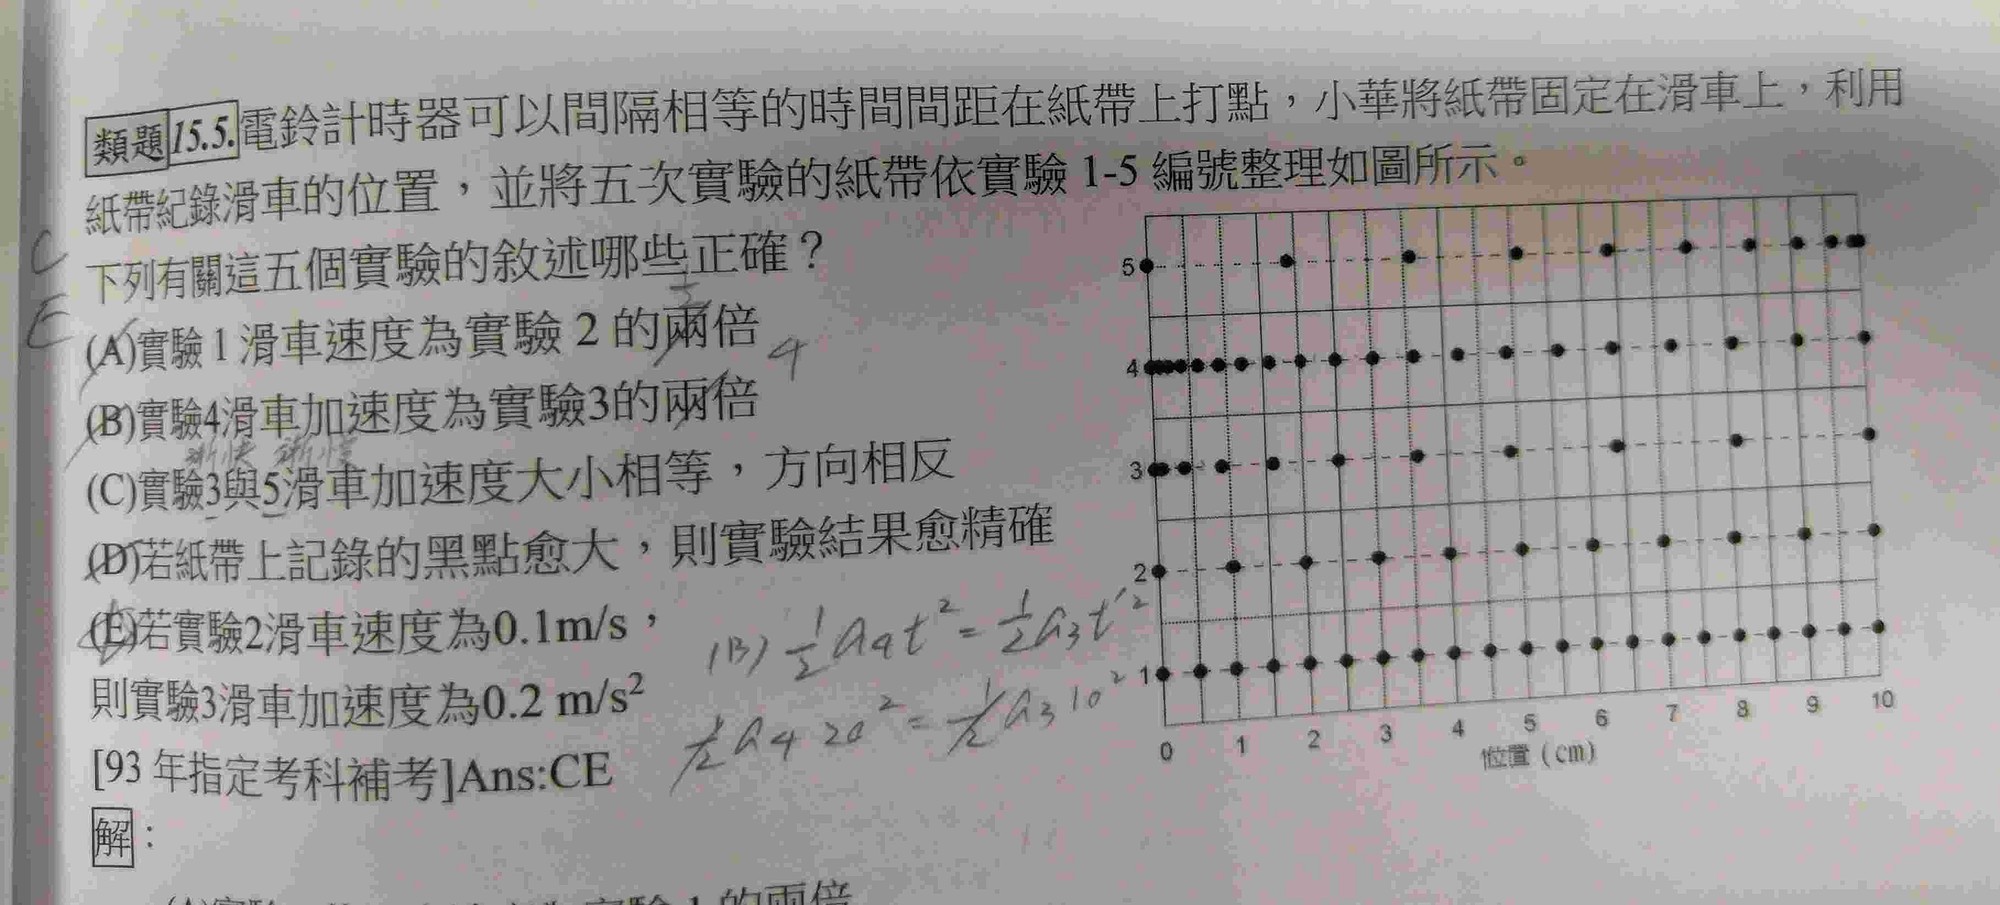 類題15.5.電鈴計時器可以間隔相等的時間間距在紙帶上打點，小華將紙帶固定在滑車上，利用
紙帶紀錄滑車的位置，並將五次實驗的紙帶依實驗 1-5 編號整理如圖所示。
C
下列有關這五個實驗的敘述哪些正確？
E
(A)實驗 1 滑車速度為實驗 2 的兩倍
4
(B)實驗4滑車加速度為實驗3的兩倍
漸快 漸慢
(C)實驗3與5滑車加速度大小相等，方向相反
(D)若紙帶上記錄的黑點愈大，則實驗結果愈精確
(E)若實驗2滑車速度為0.1m/s，
則實驗3滑車加速度為0.2 m/s²
[93 年指定考科補考]Ans:CE
解：
(B) ½a₄t² = ½a₃t'²
½a₄20² = ½a₃10²
5
4
3
2
1
0 1 2 3 4 5 6 7 8 9 10
位置 (cm)